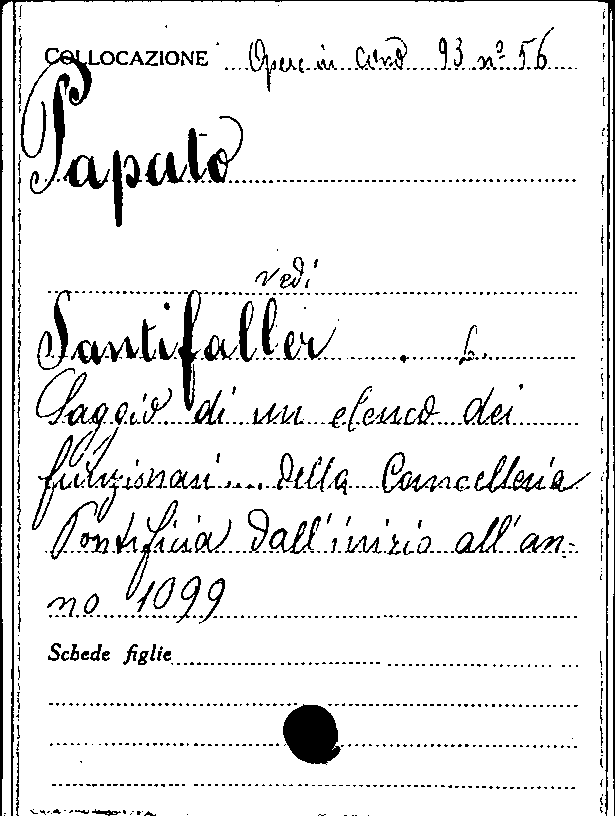 COLLOCAZIONE Opere in cons 93 nº 56
Papato
vedi
Santifaller . L.
Saggio di un elenco dei
funzionari ... della Cancelleria
Pontificia dall'inizio all'an-
no 1099
Schede figlie